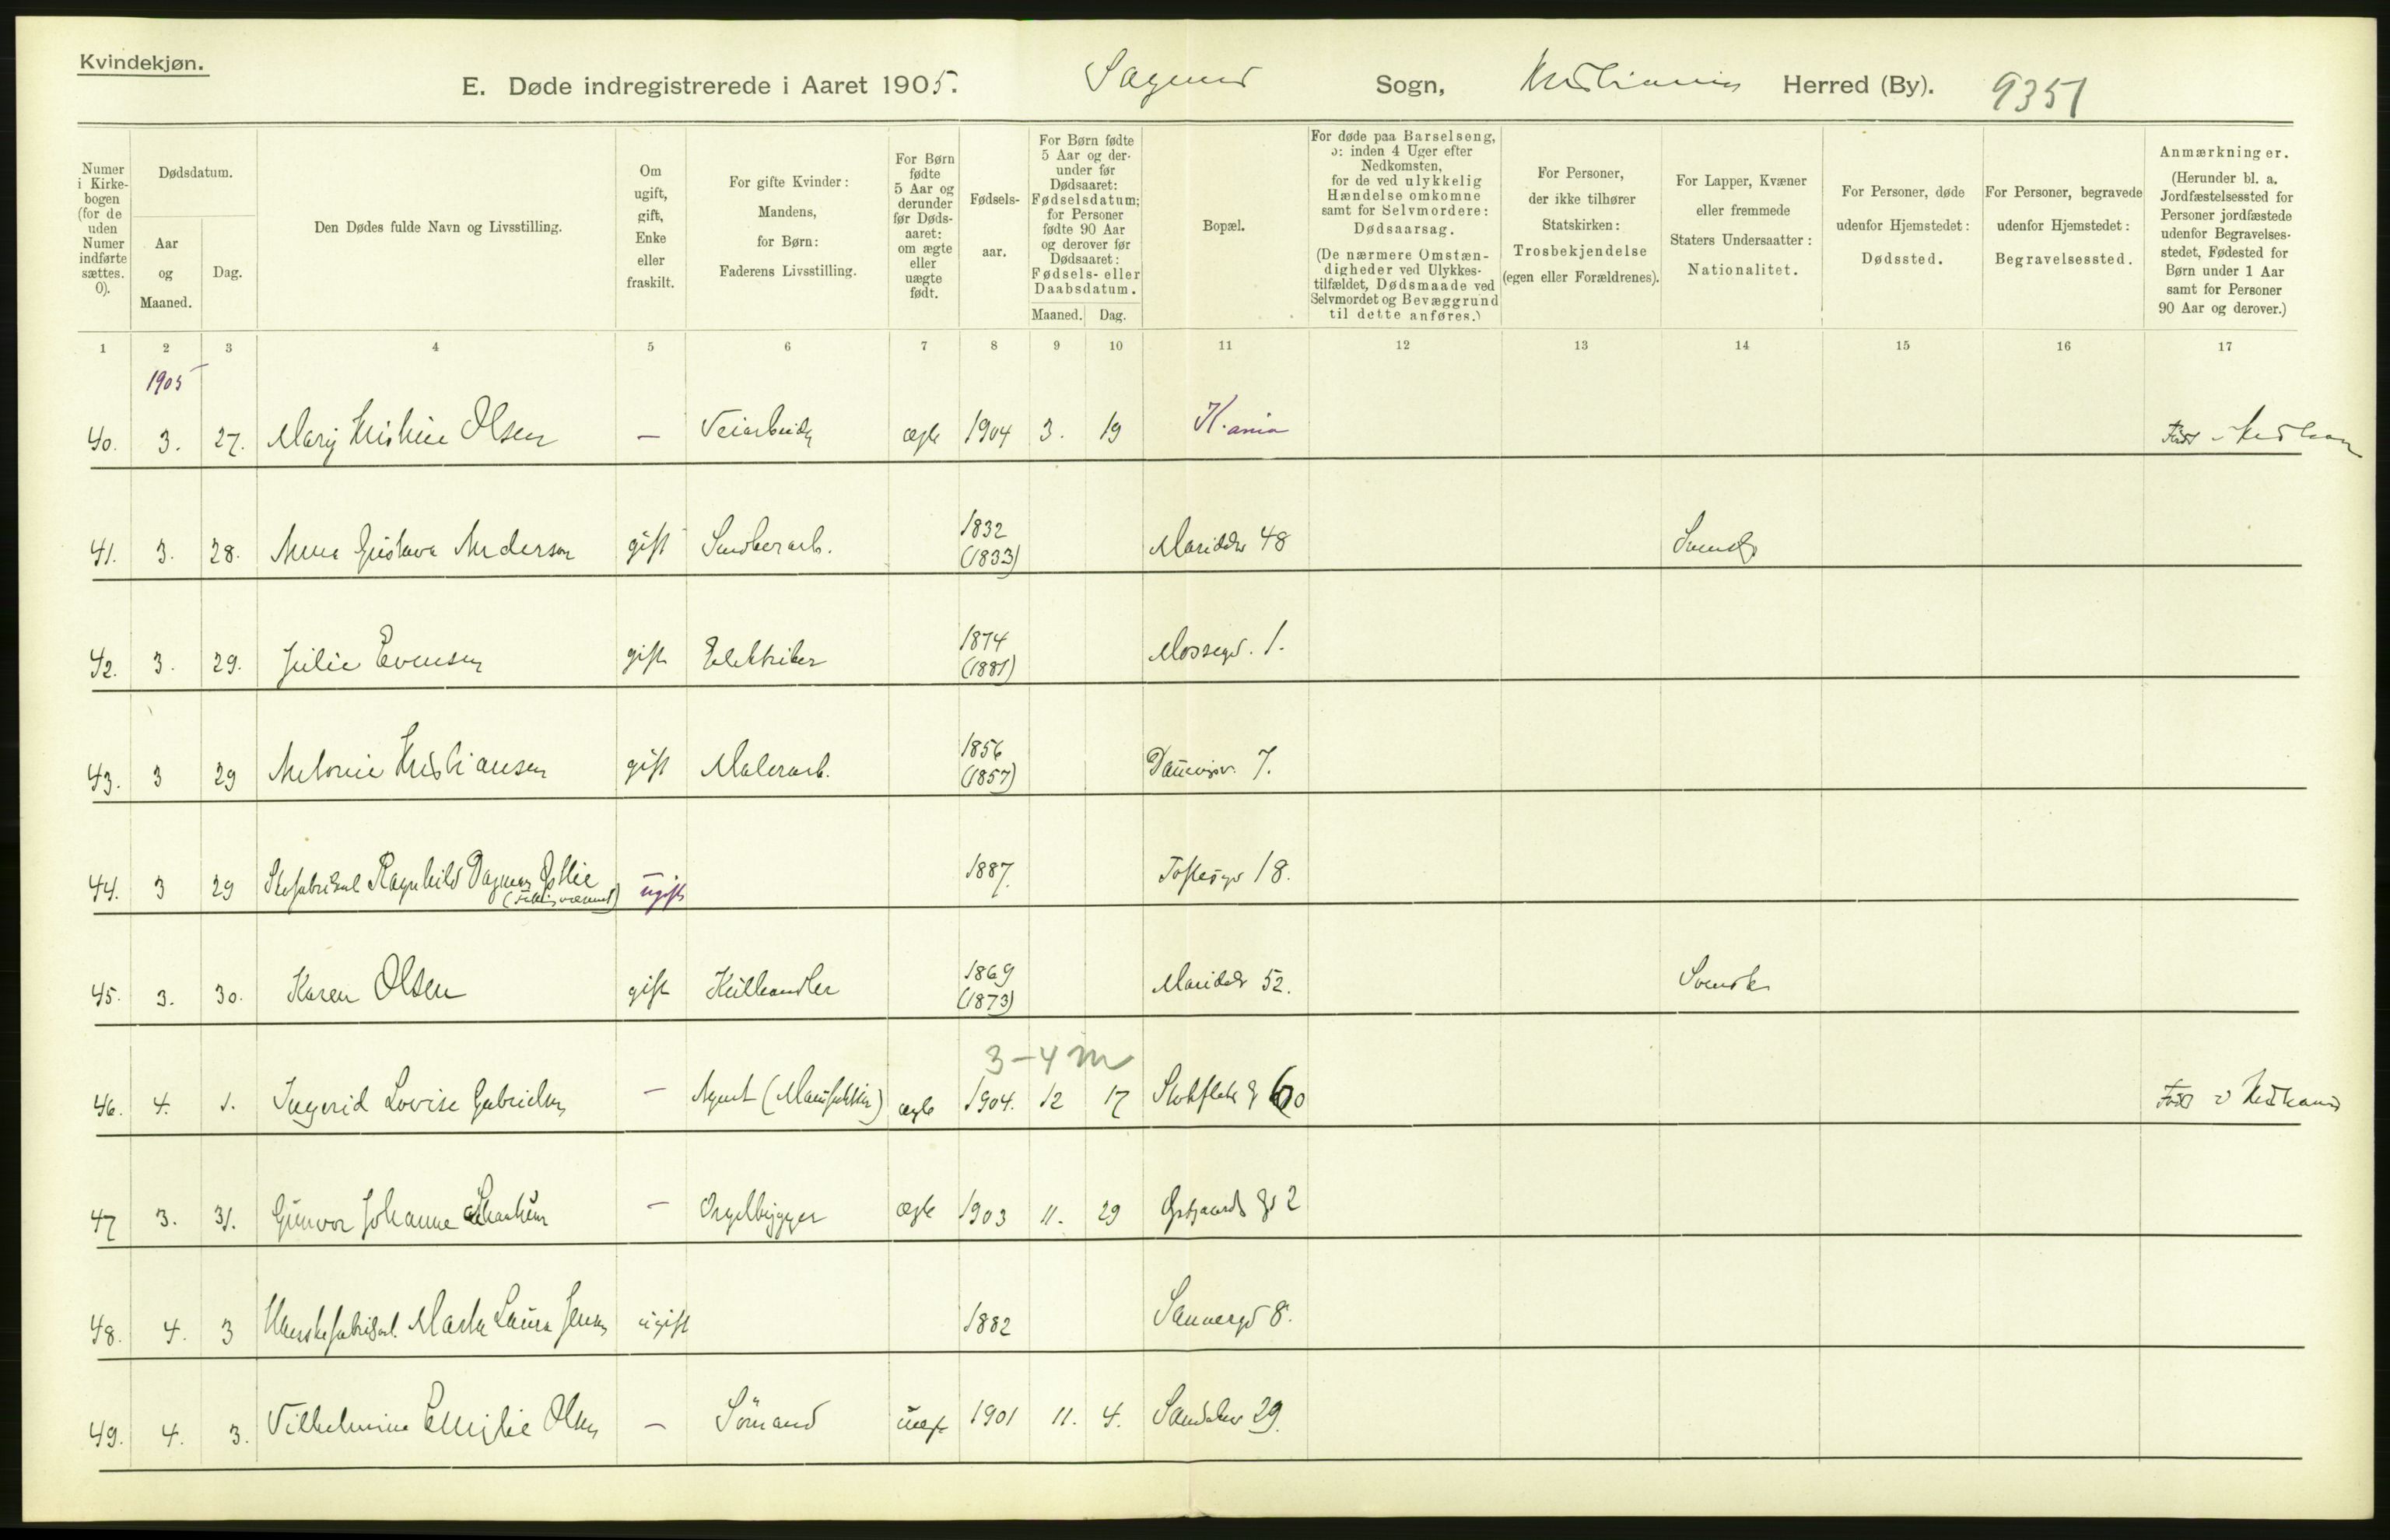 Kvindekjøn.
E. Døde indregistrerede i Aaret 1905. Sagene Sogn, Kristiania Herred (By). 9351
Numer i Kirkebogen (for de uden Numer indførte sættes. 0).
Dødsdatum.
Aar og Maaned.
Dag.
Den Dødes fulde Navn og Livsstilling.
Om ugift, gift, Enke eller fraskilt.
For gifte Kvinder: Mandens, for Børn: Faderens Livsstilling.
For Børn fødte 5 Aar og derunder før Dødsaaret: om ægte eller uægte født.
Fødselsaar.
For Børn fødte 5 Aar og derunder før Dødsaaret: Fødselsdatum; for Personer fødte 90 Aar og derover før Dødsaaret: Fødsels- eller Daabsdatum.
Maaned. Dag.
Bopæl.
For døde paa Barselseng, ɔ: inden 4 Uger efter Nedkomsten, for de ved ulykkelig Hændelse omkomne samt for Selvmordere: Dødsaarsag.
(De nærmere Omstændigheder ved Ulykkestilfældet, Dødsmaade ved Selvmordet og Bevæggrund til dette anføres.)
For Personer, der ikke tilhører Statskirken: Trosbekjendelse (egen eller Forældrenes).
For Lapper, Kvæner eller fremmede Staters Undersaatter: Nationalitet.
For Personer, døde udenfor Hjemstedet: Dødssted.
For Personer, begravede udenfor Hjemstedet: Begravelsessted.
Anmærkninger.
(Herunder bl. a. Jordfæstelsessted for Personer jordfæstede udenfor Begravelsesstedet, Fødested for Børn under 1 Aar samt for Personer 90 Aar og derover.)
1 2 3 4 5 6 7 8 9 10 11 12 13 14 15 16 17
1905
40. 3. 27. Mary Kristine Olsen — Veiarbeider ægte 1904 3. 19 K.ania Født
41. 3. 28. Anna Gustava Anderson gift 1832 (1833) Maridalsv 48 Svensk
42. 3. 29. Julie Evensen gift Elektriker 1874 (1881) Mossegd. 1.
43. 3 29 Antonie Kristiansen gift Malerarb. 1856 (1857) 7.
44. 3 29 Ragnhild Dagmar ugift 1887. Toftesgd 18.
45. 3. 30. Karen Olsen gift Kulhandler 1869 (1873) Maridalsv 52. Svensk
3-4 m
46. 4. 1. Ingerid Lovise Gabrielsen — Agent (Manufaktur) ægte 1904. 12 17 60 Født i Kristiania
47 3. 31. Gunvor Johanne — Orgelbygger ægte 1903 11. 29 2
48. 4. 3 Hanskefabrikarb. Marta Laura Jensen ugift 1882 Sannergd 8.
49. 4. 3. Vilhelmine Emilie Olsen — Sömand uægte 1901 11. 4. 29.